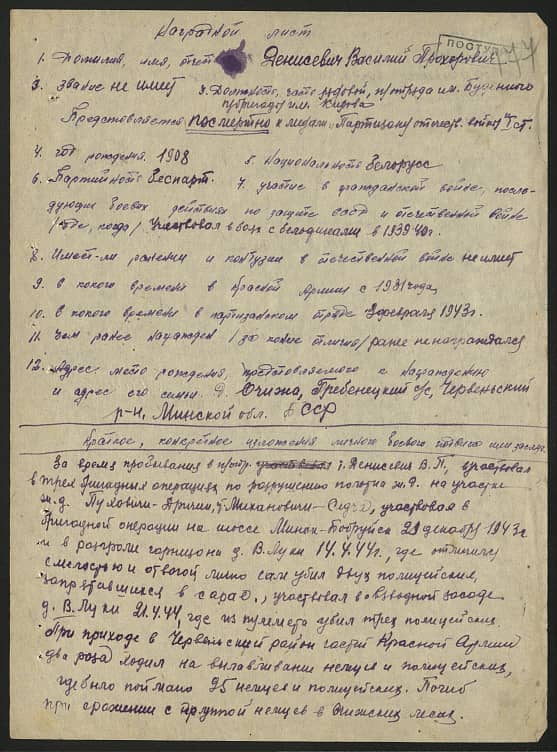 Наградной лист
ПОСТУП
1. Фамилия, имя, отчест. Денисевич Василий Прохорович
3. звание не имеет 3. Должность, часть рядовой, п/отряда им. Буденного
п/бригады им. Кирова
Представляется посмертно к медали "Партизану отечеств. войны" I ст.
4. год рождения 1908 5. Национальность Белорусс
6. Партийность Беспарт. 7. участие в гражданской войне, после-
дующих боевых действиях по защите СССР и отечественной войне
/где, когда/ Участвовал в боях с белофинами в 1939-40г.
8. Имеет-ли ранения и контузии в отечественной войне не имеет
9. с какого времени в Красной Армии с 1931 года
10. с какого времени в партизанском отряде 3 февраля 1943г.
11. Чем ранее награжден /за какие отличия/ ранее не награждался
12. Адрес, место рождения, представляемого к награждению
и адрес его семьи д. Гребенецкий с/с, Червеньский
р-н, Минской обл. БССР
Краткое, конкретное изложения личного боевого подвига или заслуг.
За время пребывания в п/отр. т. Денисевич В.П. участвовал
в трех бригадных операциях по разрушению полотна ж.д. на участке
ж.д. Пуховичи- участвовал в
бригадной операции на шоссе Минск-Бобруйск 29 декабря 1943г
и в разгроме гарнизона д. В.Луки 14.4.44г, где отличился
смелостью и отвагой лично сам убил двух полицейских,
запрятавшихся в сарае, участвовал в взводной засаде
д. В.Луки 21.4.44, где из пулемета убил трех полицейских.
При приходе в Червеньский район частей Красной Армии
два раза ходил на вылавливание немцев и полицейских,
где было поймано 25 немцев и полицейских. Погиб
при сражении с группой немцев в лесах.